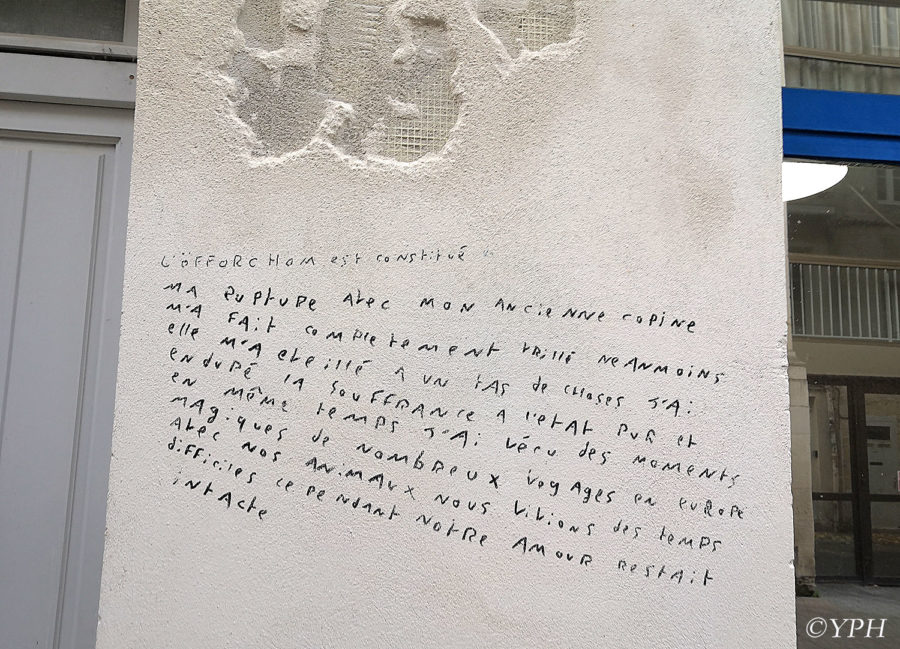 L'ÖFFORCHOM est constitué
MA RUPTURE AVEC MON ANCIENNE COPINE
M'A FAIT COMPLETEMENT VRILLÉ NEANMOINS
elle M'A eveillé A UN TAS de CHOSES J'Ai
ENDURÉ LA SOUFFRANCE A L'ETAT PUR et
en MÊME TEMPS J'Ai Vécu des MOMENTS
MAgiques de NOMBREUX VOYAGES en EUROPE
AVEC NOS ANIMAUX NOUS ViVIONS des TEMPS
difficiles cependant NOTRE AMOUR RESTAIT
iNTACTe
©YPH